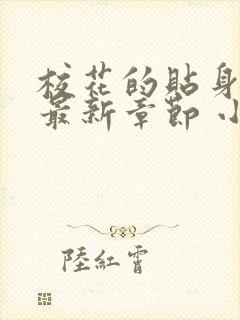 校花的貼身
最新章節 小
陸紅霄